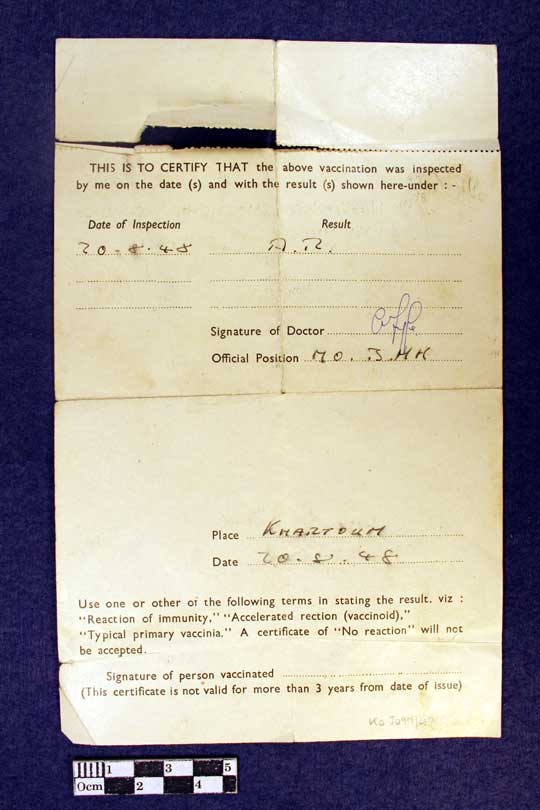 THIS IS TO CERTIFY THAT the above vaccination was inspected
by me on the date (s) and with the result (s) shown here-under : -
Date of Inspection Result
20.8.48 A.R.
Signature of Doctor
Official Position MO. B.MH
Place KHARTOUM
Date 20.8.48
Use one or other of the following terms in stating the result. viz :
"Reaction of immunity," "Accelerated rection (vaccinoid),"
"Typical primary vaccinia." A certificate of "No reaction" will not
be accepted.
Signature of person vaccinated
(This certificate is not valid for more than 3 years from date of issue)
1 3 5
0cm 2 4